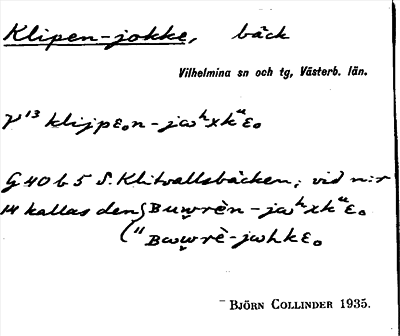 Klipen-jokke, bäck
Vilhelmina sn och tg, Västerb. län.
klijpɛ₀n - jωʰxkᵘɛ₀
G 40 b 5 S. Klitvallsbäcken; vid n:r
14 kallas den { Buw̬rèn - jωʰxkᵘɛ₀
( " Bωw̬rè - jωhkɛ₀
BJÖRN COLLINDER 1935.